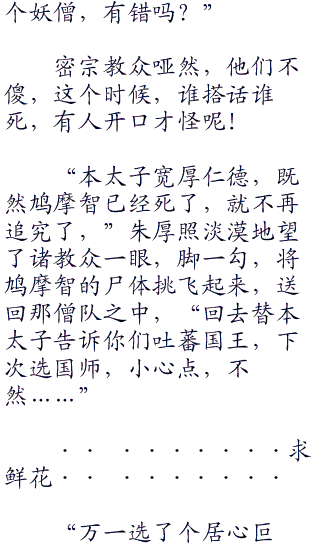 个妖僧，有错吗？”
密宗教众哑然，他们不
傻，这个时候，谁搭话谁
死，有人开口才怪呢！
“本太子宽厚仁德，既
然鸠摩智已经死了，就不再
追究了，”朱厚照淡漠地望
了诸教众一眼，脚一勾，将
鸠摩智的尸体挑飞起来，送
回那僧队之中，“回去替本
太子告诉你们吐蕃国王，下
次选国师，小心点，不
然……”
·· ·······求
鲜花·· ·······
“万一选了个居心叵